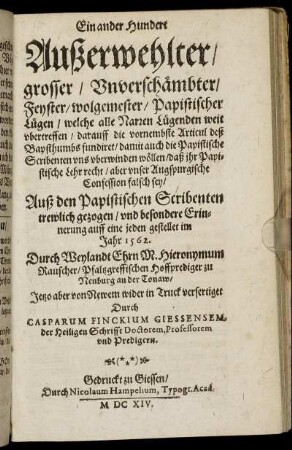 Ein ander Hundert
Außerwehlter/
grosser / Vnverschämbter/
Feyster/ wolgemester/ Papistischer
Lügen / welche alle Narren Lügenden weit
vbertreffen / darauff die vornembste Articul deß
Bapsthumbs fundiret/ damit auch die Papistische
Scribenten vns vberwinden wöllen/ daß ihr Papi-
stische Lehr recht/ aber vnser Augspurgische
Confession falsch sey/
Auß den Papistischen Scribenten
trewlich gezogen/ vnd besondere Erin-
nerung auff eine jeden gestellet im
Jahr 1562.
Durch Weylandt Ehrn M. Hieronymum
Rauscher/ Pfaltzgreffischen Hoffprediger zu
Neuburg an der Tonaw/
Jetzo aber von Newem wider in Truck verfertiget
Durch
CASPARUM FINCKIUM GIESSENSEM,
der Heiligen Schrifft Doctorem, Professorem
vnd Predigern.
(***)
Gedruckt zu Giessen/
Durch Nicolaum Hampelium, Typogr. Acad.
M DC XIV.